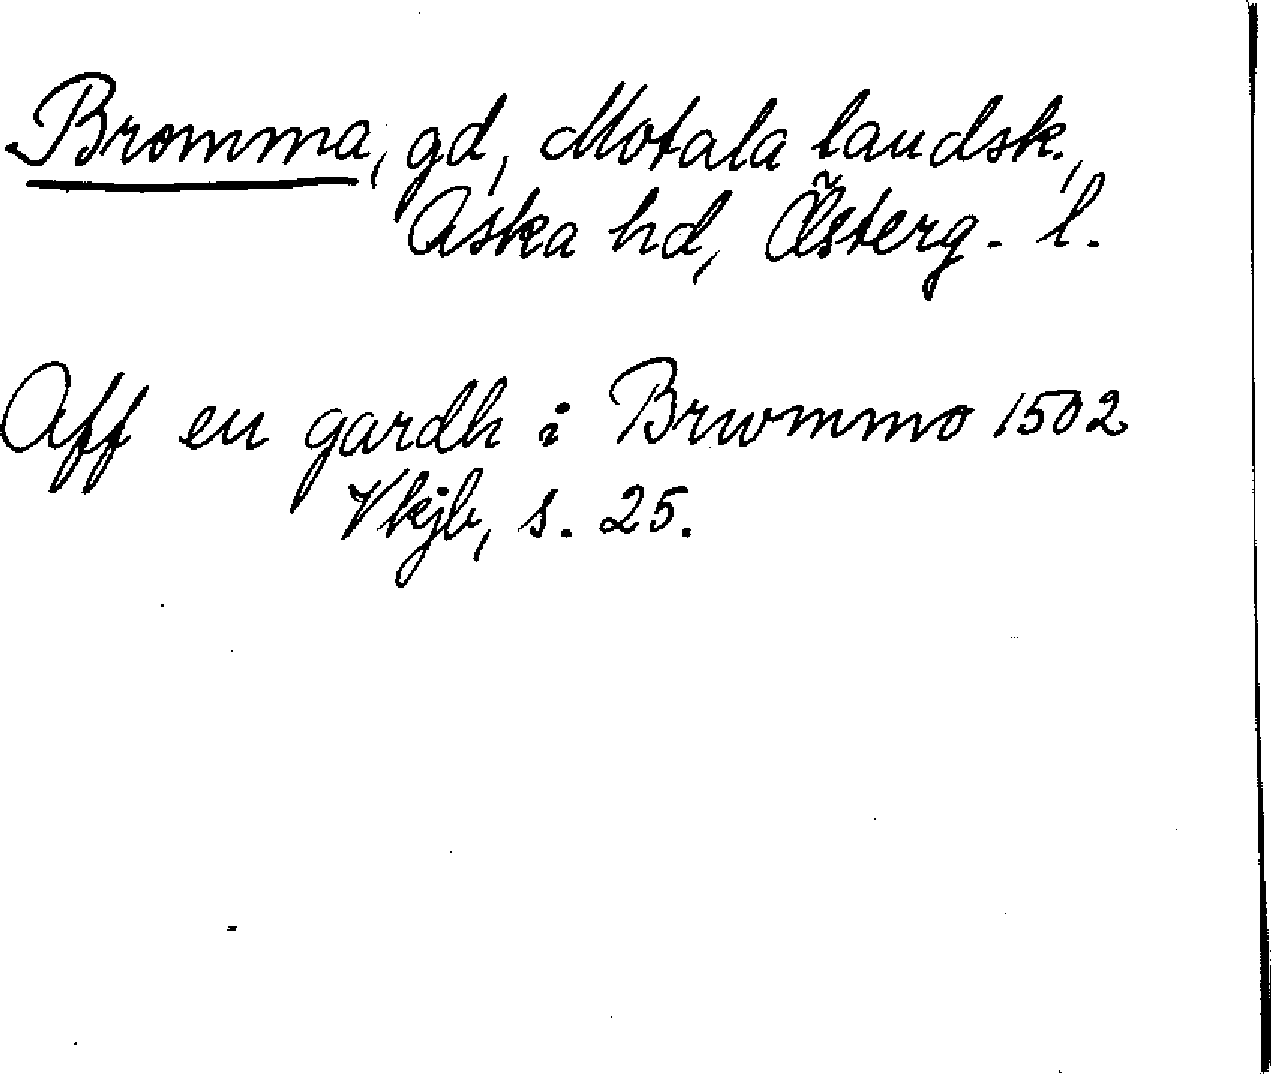 Bromma, gd, Motala landsk.,
Aska hd, Österg. l.
Aff en gardh i Brwmmo 1502
Vkjb, s. 25.